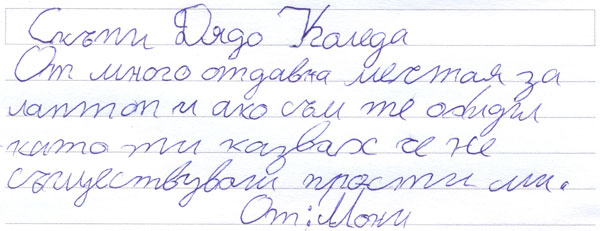 Скъпи Дядо Коледа
От много отдавна мечтая за
лаптоп и ако съм те обидил
като ти казвах че не
съществуваш прости ми.
От: Мони